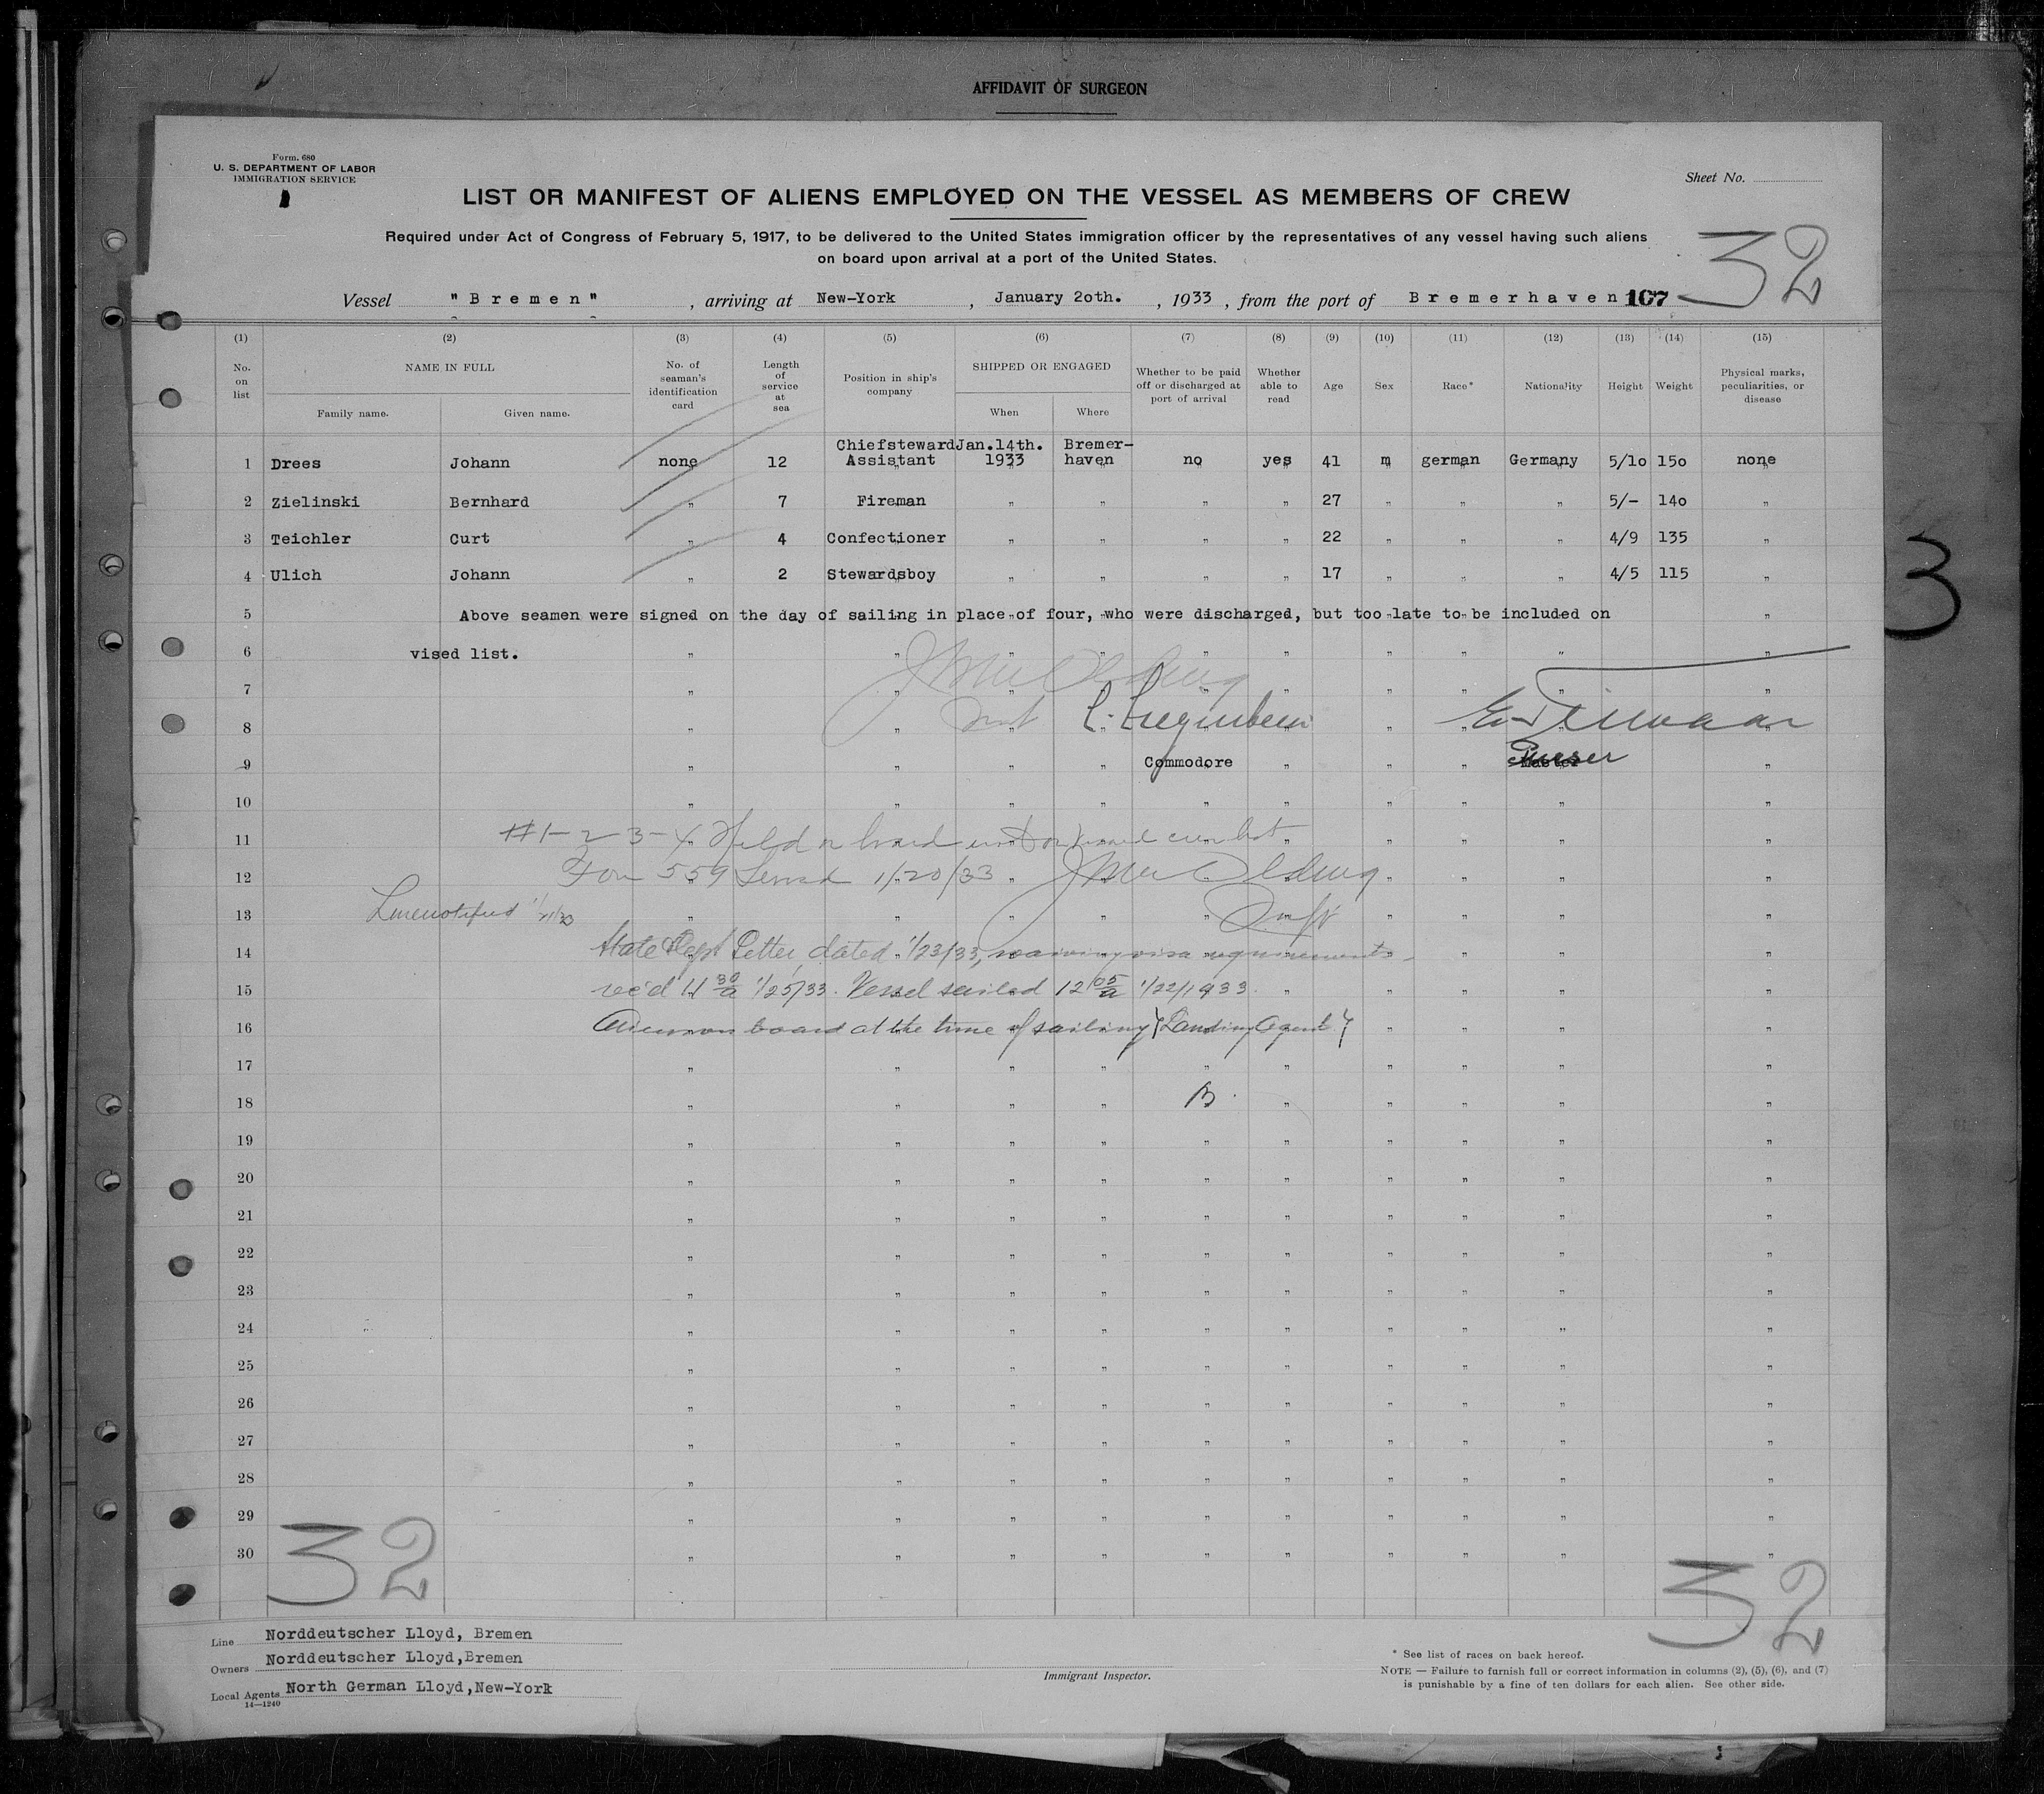 AFFIDAVIT OF SURGEON
Form. 680
U. S. DEPARTMENT OF LABOR
IMMIGRATION SERVICE
Sheet No.
LIST OR MANIFEST OF ALIENS EMPLOYED ON THE VESSEL AS MEMBERS OF CREW
Required under Act of Congress of February 5, 1917, to be delivered to the United States immigration officer by the representatives of any vessel having such aliens
on board upon arrival at a port of the United States.
32
Vessel "Bremen", arriving at New-York, January 2oth., 1933, from the port of Bremerhaven 167
(1) (2) (3) (4) (5) (6) (7) (8) (9) (10) (11) (12) (13) (14) (15)
No. on list NAME IN FULL Family name. Given name. No. of seaman's identification card Length of service at sea Position in ship's company SHIPPED OR ENGAGED When Where Whether to be paid off or discharged at port of arrival Whether able to read Age Sex Race* Nationality Height Weight Physical marks, peculiarities, or disease
Chiefsteward Jan.14th. Bremer-
1 Drees Johann none 12 Assistant 1933 haven no yes 41 m german Germany 5/1o 15o none
2 Zielinski Bernhard " 7 Fireman " " " " 27 " " " 5/- 14o "
3 Teichler Curt " 4 Confectioner " " " " 22 " " " 4/9 135 "
4 Ulich Johann " 2 Stewardsboy " " " " 17 " " " 4/5 115 "
3
5 Above seamen were signed on the day of sailing in place of four, who were discharged, but too late to be included on
6 vised list.
7
8
9 Commodore Purser
10
11 #1-2-3-4 Held on board
12 559 Served 1/20/33
13 Line notified 1/21/33
14 State Dept Letter, dated 1/23/33, waiving visa requirements
15 rec'd 11 30 a 1/25/33. Vessel sailed 12 05 a 1/22/1933
16 on board at the time of sailing (Landing Agent)
17
18 B.
19
20
21
22
23
24
25
26
27
28
29
30
32
32
Line Norddeutscher Lloyd, Bremen
Owners Norddeutscher Lloyd,Bremen
Local Agents North German Lloyd,New-York
14—1240
Immigrant Inspector.
* See list of races on back hereof.
NOTE — Failure to furnish full or correct information in columns (2), (5), (6), and (7)
is punishable by a fine of ten dollars for each alien. See other side.